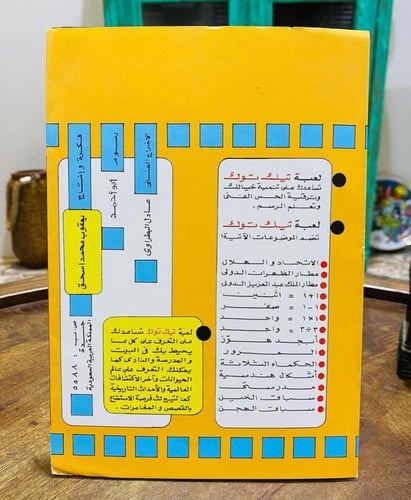 لعبة تيك توك
تساعدك على تنمية خيالك
وترقية الحس الفنى
وتعلم الرسم.
لعبة تيك توك
تضم الموضوعات الآتية:
الاتحاد والهلال
مطار الظهران الدولى
مطار الملك عبد العزيز الدولى
١+١ = اثنين
١-١ = صفر
١×١ = واحد
٣÷٣ = واحد
أبجد هوّز
الحرور
الحكماء الثلاثة
أشكال هندسية
مدرستى
سباق الخيل
سباق الهجن
لعبة تيك توك تساعدك
على التعرف على كل ما
يحيط بك فى البيت
والمدرسة والنادى كما
يمكنك التعرف على عالم
الحيوانات وآخر الاكتشافات
العالمية والأحداث التاريخية
كما تتيح لك فرصة الاستمتاع
بالقصص والمغامرات.
فكرة وإنتاج
يعقوب محمد اسحق
رسوم
أبو أحمد
الاخراج الفنى
عادل البطراوى
ص.ب ٥٥٨٨
جدة
المملكة العربية السعودية